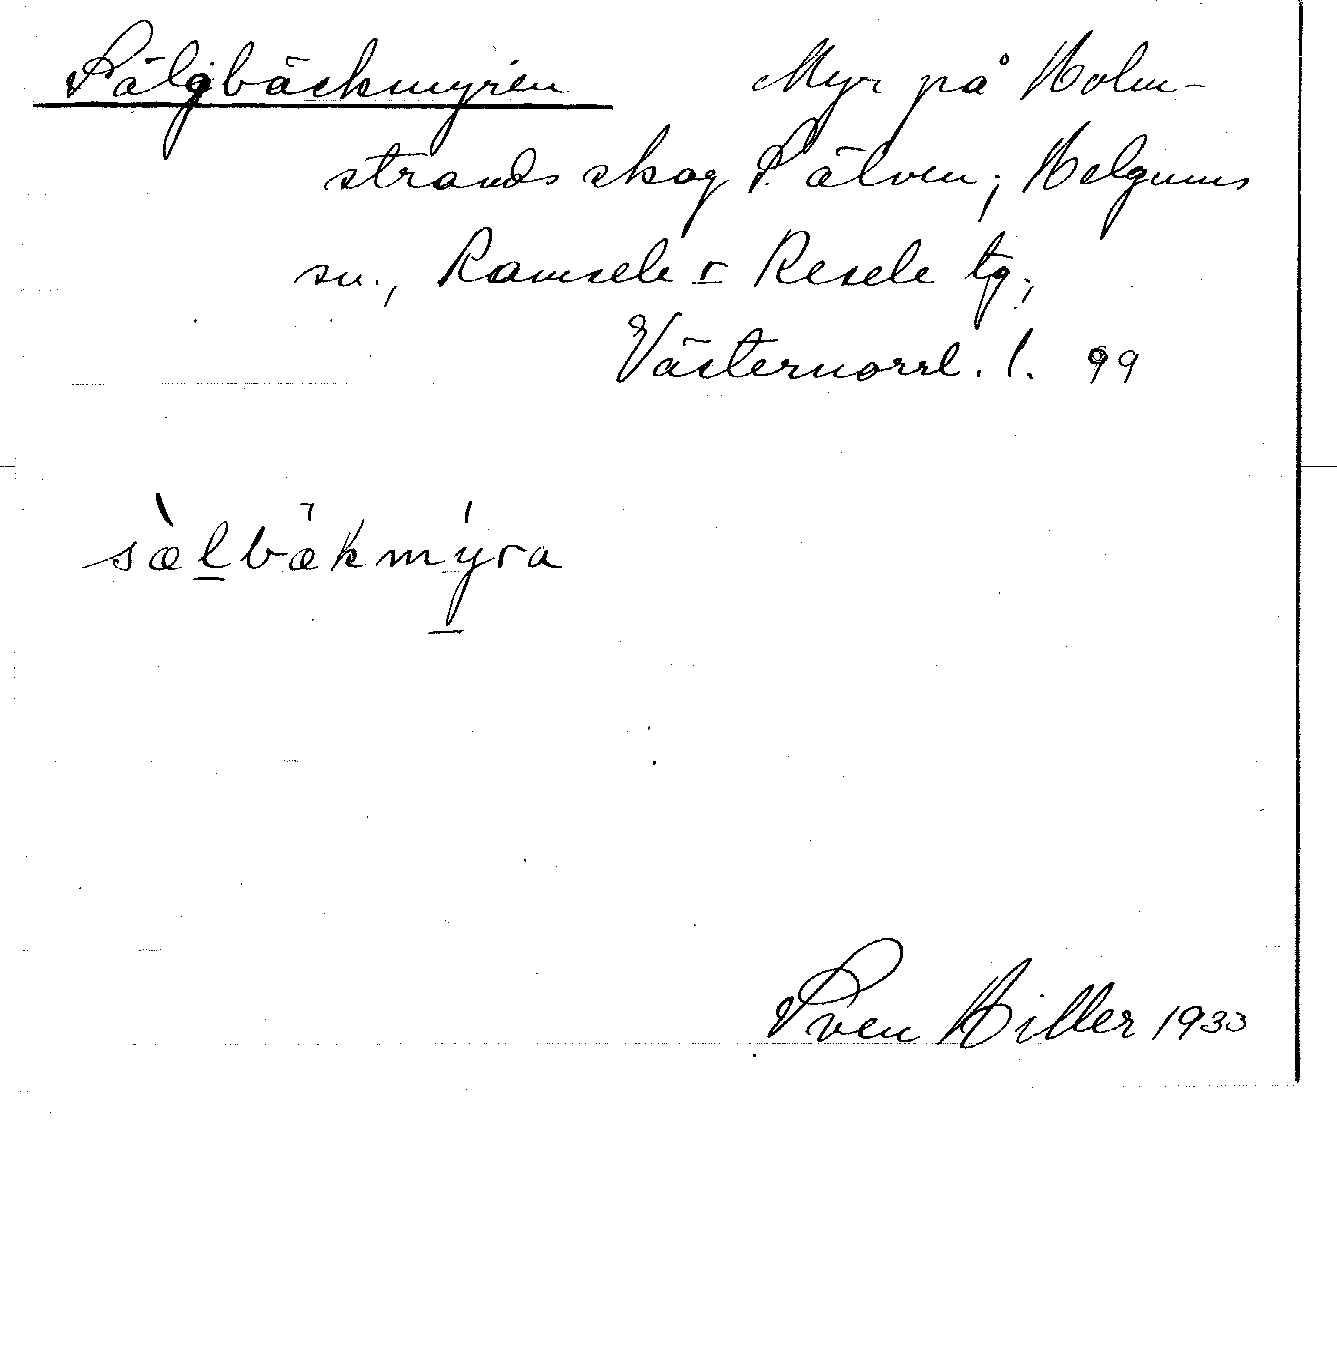 Sälgbäckmyren Myr på Holm-
strands skog S. älven; Helgums
sn., Ramsele o Resele tg;
Västernorrl. l. 99
sæ̀lbækmýra
Sven Hiller 1933